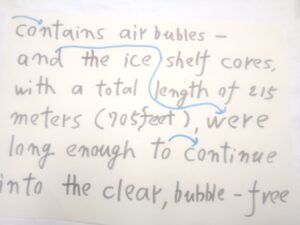 contains air bubles -
and the ice shelf cores,
with a total length of 215
meters (705feet), were
long enough to continue
into the clear, bubble-free